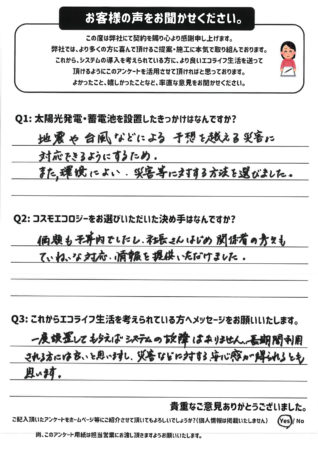 お客様の声をお聞かせください。
この度は弊社にて契約を賜り心より感謝申し上げます。
弊社では、より多くの方に喜んで頂けるご提案・施工に本気で取り組んでおります。
これから、システムの導入を考えられている方に、より良いエコライフ生活を送って
頂けるようにこのアンケートを活用させて頂ければと思っております。
よかったこと、嬉しかったことなど、率直な意見をお聞かせください。
Q1: 太陽光発電・蓄電池を設置したきっかけはなんですか?
地震や台風などによる予想を越える災害に
対応できるようにするため。
また,環境によい、災害等に対する方法を選びました。
Q2: コスモエコロジーをお選びいただいた決め手はなんですか?
価額も予算内でしたし、社長さんはじめ関係者の方々も
ていねいな対応、情報を提供いただけました。
Q3: これからエコライフ生活を考えられている方へメッセージをお願いいたします。
一度設置してもらえばシステムの故障はありません。長期間利用
される方には良いと思いますし、災害などに対する安心感が得られるとも
思います。
貴重なご意見ありがとうございました。
ご記入頂いたアンケートをホームページ等にご紹介させて頂いてもよろしいでしょうか?(個人情報は掲載いたしません) Yes / No
尚、このアンケート用紙は担当営業にお渡し頂きますようお願いいたします。